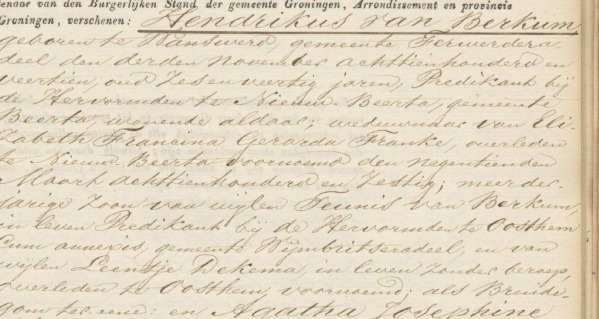 enaar van den Burgerlijken Stand, der gemeente Groningen, Arrondissement en provincie
Groningen, verschenen: Hendrikus van Berkum
geboren te Wanswerd, gemeente Ferwerdera-
deel den derden November achttienhonderd en
veertien, oud zesenveertig jaren, Predikant bij
de Hervormden te Nieuw Beerta, gemeente
Beerta wonende aldaar; weduwnaar van Eli-
zabeth Francina Gerarda Franke, overleden
te Nieuw-Beerta voornoemd den negentienden
Maart achttienhonderd en zestig; meerder-
jarige Zoon van wijlen Teunis van Berkum,
in leven Predikant bij de Hervormden te Oosthem
Cum annexis, gemeente Wymbritseradeel, en van
wijlen Leentje Dekema, in leven zonder beroep,
overleden te Oosthem voornoemd; als Bruide-
gom ter eene: en Agatha Josephine